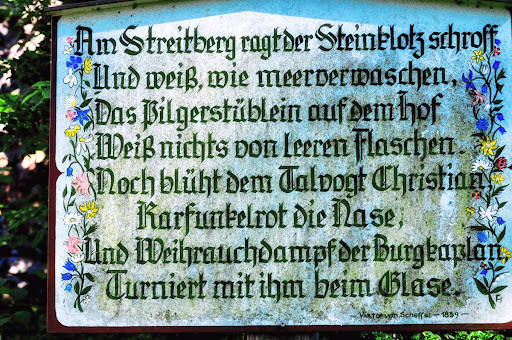 Am Streitberg ragt der Steinklotz schroff
Und weiß, wie meerverwaschen,
Das Pilgerstüblein auf dem Hof
Weiß nichts von leeren Flaschen.
Noch blüht dem Talvogt Christian
Karfunkelrot die Nase,
Und Weihrauchdampf der Burgkaplan
Turniert mit ihm beim Glase.
Viktor von Scheffel – 1859 –